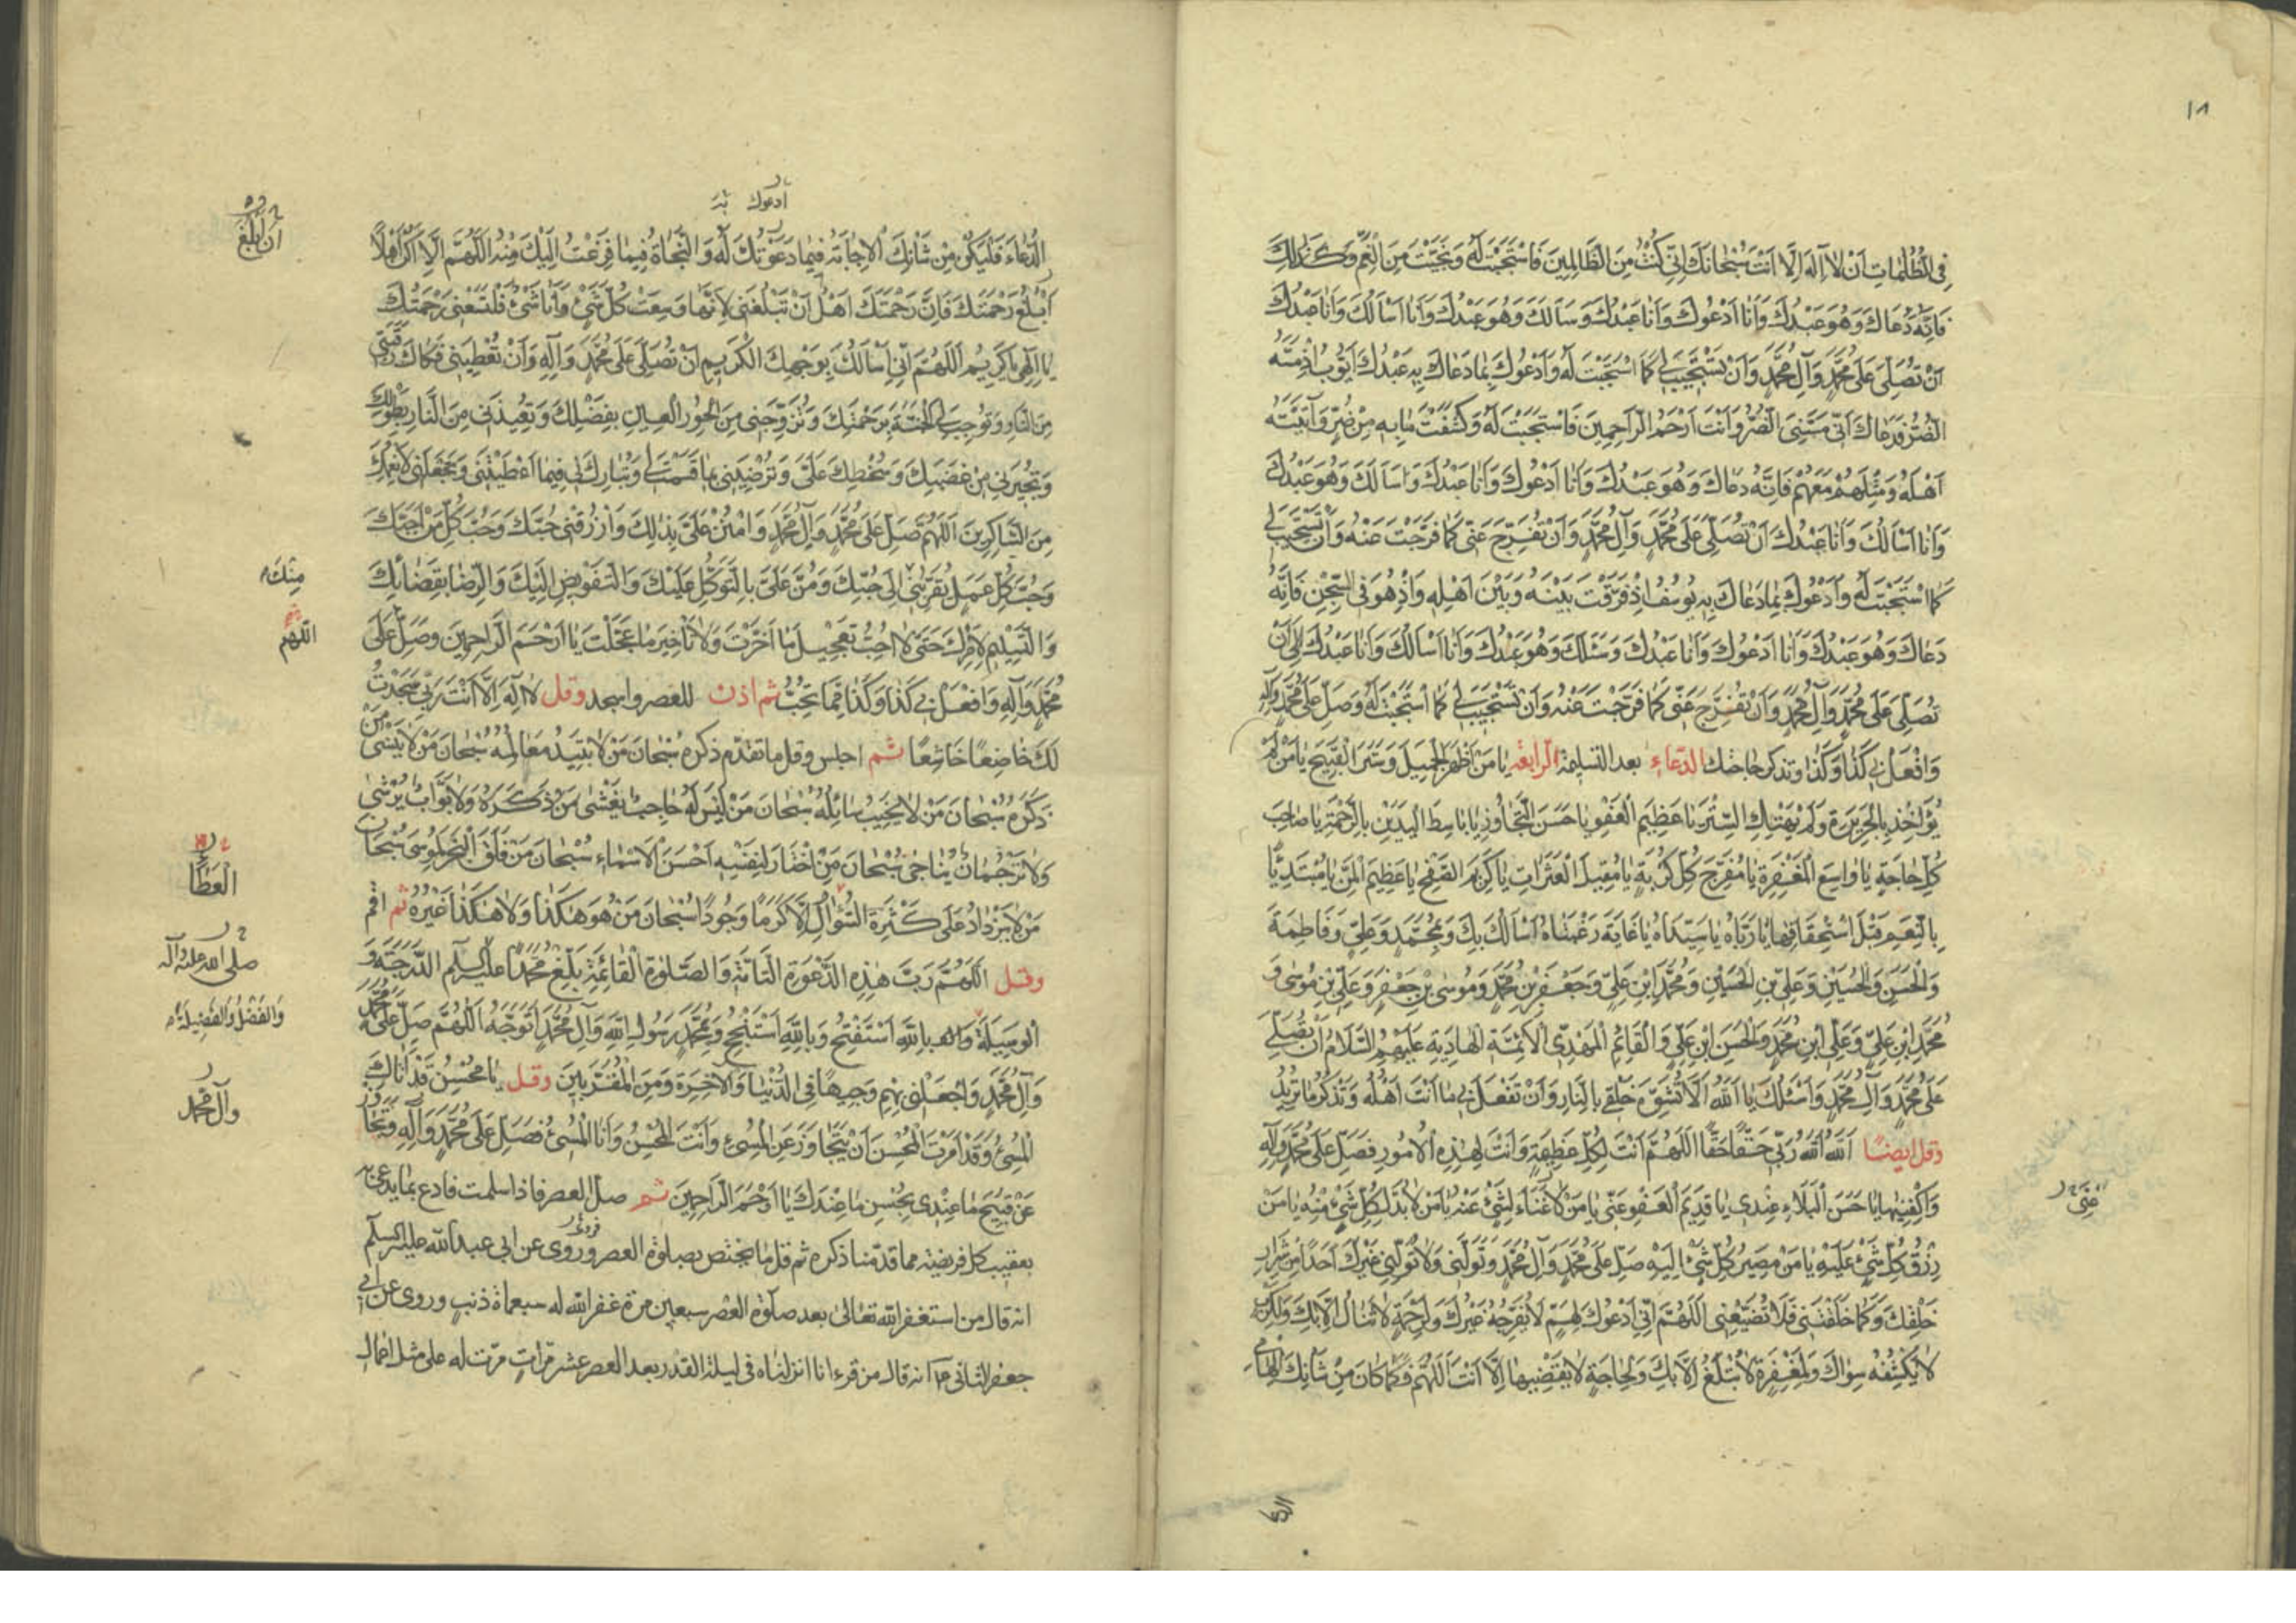 ١٨
فِى الظُّلُمَاتِ اَنْ لَا اِلٰهَ اِلَّا اَنْتَ سُبْحَانَكَ اِنِّى كُنْتُ مِنَ الظَّالِمِينَ فَاسْتَجَبْتَ لَهُ وَنَجَّيْتَهُ مِنَ الْغَمِّ وَكَذٰلِكَ
فَاِنَّهُ دَعَاكَ وَهُوَ عَبْدُكَ وَاَنَا اَدْعُوكَ وَاَنَا عَبْدُكَ وَسَاَلَكَ وَهُوَ عَبْدُكَ وَاَنَا اَسْاَلُكَ وَاَنَا عَبْدُكَ
اَنْ تُصَلِّىَ عَلَى مُحَمَّدٍ وَآلِ مُحَمَّدٍ وَاَنْ تَسْتَجِيبَ لِى كَمَا اسْتَجَبْتَ لَهُ وَاَدْعُوكَ بِمَا دَعَاكَ بِهِ عَبْدُكَ اَيُّوبُ اِذْ مَسَّهُ
الضُّرُّ فَدَعَاكَ اَنِّى مَسَّنِىَ الضُّرُّ وَاَنْتَ اَرْحَمُ الرَّاحِمِينَ فَاسْتَجَبْتَ لَهُ وَكَشَفْتَ مَا بِهِ مِنْ ضُرٍّ وَآتَيْتَهُ
اَهْلَهُ وَمِثْلَهُمْ مَعَهُمْ فَاِنَّهُ دَعَاكَ وَهُوَ عَبْدُكَ وَاَنَا اَدْعُوكَ وَاَنَا عَبْدُكَ وَسَاَلَكَ وَهُوَ عَبْدُكَ
وَاَنَا اَسْاَلُكَ وَاَنَا عَبْدُكَ اَنْ تُصَلِّىَ عَلَى مُحَمَّدٍ وَآلِ مُحَمَّدٍ وَاَنْ تُفَرِّجَ عَنِّى كَمَا فَرَّجْتَ عَنْهُ وَاَنْ تَسْتَجِيبَ لِى
كَمَا اسْتَجَبْتَ لَهُ وَاَدْعُوكَ بِمَا دَعَاكَ بِهِ يُوسُفُ اِذْ فَرَّقْتَ بَيْنَهُ وَبَيْنَ اَهْلِهِ وَاِذْ هُوَ فِى السِّجْنِ فَاِنَّهُ
دَعَاكَ وَهُوَ عَبْدُكَ وَاَنَا اَدْعُوكَ وَاَنَا عَبْدُكَ وَسَئَلَكَ وَهُوَ عَبْدُكَ وَاَنَا اَسْاَلُكَ وَاَنَا عَبْدُكَ اَنْ
تُصَلِّىَ عَلَى مُحَمَّدٍ وَآلِ مُحَمَّدٍ وَاَنْ تُفَرِّجَ عَنِّى كَمَا فَرَّجْتَ عَنْهُ وَاَنْ تَسْتَجِيبَ لِى كَمَا اسْتَجَبْتَ لَهُ وَصَلِّ عَلَى مُحَمَّدٍ وَآلِهِ
وَافْعَلْ بِى كَذَا وَكَذَا وتذكر حاجتك الدّعاء بعد التسليمة الرابعة يَا مَنْ اَظْهَرَ الْجَمِيلَ وَسَتَرَ الْقَبِيحَ يَا مَنْ لَمْ
يُؤَاخِذْ بِالْجَرِيرَةِ وَلَمْ يَهْتِكِ السِّتْرَ يَا عَظِيمَ الْعَفْوِ يَا حَسَنَ التَّجَاوُزِ يَا بَاسِطَ الْيَدَيْنِ بِالرَّحْمَةِ يَا صَاحِبَ
كُلِّ حَاجَةٍ يَا وَاسِعَ الْمَغْفِرَةِ يَا مُفَرِّجَ كُلِّ كُرْبَةٍ يَا مُقِيلَ الْعَثَرَاتِ يَا كَرِيمَ الصَّفْحِ يَا عَظِيمَ الْمَنِّ يَا مُبْتَدِئًا
بِالنِّعَمِ قَبْلَ اسْتِحْقَاقِهَا يَا رَبَّاهُ يَا سَيِّدَاهُ يَا غَايَةَ رَغْبَتَاهُ اَسْاَلُكَ بِكَ وَبِمُحَمَّدٍ وَعَلِىٍّ وَفَاطِمَةَ
وَالْحَسَنِ وَالْحُسَيْنِ وَعَلِىِّ بْنِ الْحُسَيْنِ وَمُحَمَّدِ ابْنِ عَلِىٍّ وَجَعْفَرِ بْنِ مُحَمَّدٍ وَمُوسَى بْنِ جَعْفَرٍ وَعَلِىِّ بْنِ مُوسَى وَ
مُحَمَّدِ ابْنِ عَلِىٍّ وَعَلِىِّ ابْنِ مُحَمَّدٍ وَالْحَسَنِ ابْنِ عَلِىٍّ وَالْقَائِمِ الْمَهْدِىِّ الْاَئِمَّةِ الْهَادِيَةِ عَلَيْهِمُ السَّلَامُ اَنْ تُصَلِّىَ
عَلَى مُحَمَّدٍ وَآلِ مُحَمَّدٍ وَاَسْئَلُكَ يَا اَللّٰهُ اَلَّا تُشَوِّهَ خَلْقِى بِالنَّارِ وَاَنْ تَفْعَلَ بِى مَا اَنْتَ اَهْلُهُ وَتَذْكُرُ مَا تُرِيدُ
وقل ايضًا اَللّٰهُ اَللّٰهُ رَبِّى حَقًّا حَقًّا اَللّٰهُمَّ اَنْتَ لِكُلِّ عَظِيمَةٍ وَاَنْتَ لِهٰذِهِ الْاُمُورِ فَصَلِّ عَلَى مُحَمَّدٍ وَآلِهِ
وَاكْفِنِيهَا يَا حَسَنَ الْبَلَاءِ عِنْدِى يَا قَدِيمَ الْعَفْوِ عَنِّى يَا مَنْ لَا غَنَاءَ لِشَىْءٍ عَنْهُ يَا مَنْ لَا بُدَّ لِكُلِّ شَىْءٍ مِنْهُ يَا مَنْ
عَنِّى
رِزْقُ كُلِّ شَىْءٍ عَلَيْهِ يَا مَنْ مَصِيرُ كُلِّ شَىْءٍ اِلَيْهِ صَلِّ عَلَى مُحَمَّدٍ وَآلِ مُحَمَّدٍ وَتَوَلَّنِى وَلَا تُوَلِّنِى غَيْرَكَ اَحَدًا مِنْ شِرَارِ
خَلْقِكَ وَكَمَا خَلَقْتَنِى فَلَا تُضَيِّعْنِى اَللّٰهُمَّ اِنِّى اَدْعُوكَ لِهَمٍّ لَا يُفَرِّجُهُ غَيْرُكَ وَلِرَحْمَةٍ لَا تُنَالُ اِلَّا بِكَ وَلِكَرْبٍ
لَا يَكْشِفُهُ سِوَاكَ وَلِمَغْفِرَةٍ لَا تُبْلَغُ اِلَّا بِكَ وَلِحَاجَةٍ لَا يَقْضِيهَا اِلَّا اَنْتَ اَللّٰهُمَّ فَكَمَا كَانَ مِنْ شَانِكَ اِلْهَامِى
ادعوك
الدُّعَاءَ فَلْيَكُنْ مِنْ شَانِكَ الْاِجَابَةُ فِيمَا دَعَوْتُكَ لَهُ وَالنَّجَاةُ فِيمَا فَزِعْتُ اِلَيْكَ مِنْهُ اَللّٰهُمَّ اِلَّا اَكُنْ اَهْلًا
اَنْ اَبْلُغَ
اَبْلُغُ رَحْمَتَكَ فَاِنَّ رَحْمَتَكَ اَهْلٌ اَنْ تَبْلُغَنِى لِاَنَّهَا وَسِعَتْ كُلَّ شَىْءٍ وَاَنَا شَىْءٌ فَلْتَسَعْنِى رَحْمَتُكَ
يَا اِلٰهِى يَا كَرِيمُ اَللّٰهُمَّ اِنِّى اَسْاَلُكَ بِوَجْهِكَ الْكَرِيمِ اَنْ تُصَلِّىَ عَلَى مُحَمَّدٍ وَآلِهِ وَاَنْ تُعْطِيَنِى فَكَاكَ رَقَبَتِى
مِنَ النَّارِ وَتُوجِبَ لِىَ الْجَنَّةَ بِرَحْمَتِكَ وَتُزَوِّجَنِى مِنَ الْحُورِ الْعِينِ بِفَضْلِكَ وَتُعِيذَنِى مِنَ النَّارِ بِطَوْلِكَ
وَتُجِيرَنِى مِنْ غَضَبِكَ وَسَخَطِكَ عَلَىَّ وَتُرْضِيَنِى بِمَا قَسَمْتَ لِى وَتُبَارِكَ لِى فِيمَا اَعْطَيْتَنِى وَتَجْعَلَنِى لِاَنْعُمِكَ
مِنَ الشَّاكِرِينَ اَللّٰهُمَّ صَلِّ عَلَى مُحَمَّدٍ وَآلِ مُحَمَّدٍ وَامْنُنْ عَلَىَّ بِذٰلِكَ وَارْزُقْنِى حُبَّكَ وَحُبَّ كُلِّ مَنْ اَحَبَّكَ
وَحُبَّ كُلِّ عَمَلٍ يُقَرِّبُنِى اِلَى حُبِّكَ وَمُنَّ عَلَىَّ بِالتَّوَكُّلِ عَلَيْكَ وَالتَّفْوِيضِ اِلَيْكَ وَالرِّضَا بِقَضَائِكَ
مِنْكَ
وَالتَّسْلِيمِ لِاَمْرِكَ حَتَّى لَا اُحِبَّ تَعْجِيلَ مَا اَخَّرْتَ وَلَا تَاْخِيرَ مَا عَجَّلْتَ يَا اَرْحَمَ الرَّاحِمِينَ وَصَلِّ عَلَى
اللّهم
مُحَمَّدٍ وَآلِهِ وَافْعَلْ بِى كَذَا وَكَذَا مِمَّا تُحِبُّ ثم اذن للعصر واسجد وقل لَا اِلٰهَ اِلَّا اَنْتَ رَبِّى سَجَدْتُ
لَكَ خَاضِعًا خَاشِعًا ثم اجلس وقل ما تقدّم ذكره سُبْحَانَ مَنْ لَا تَبِيدُ مَعَالِمُهُ سُبْحَانَ مَنْ لَا يَنْسَى مَنْ
ذَكَرَهُ سُبْحَانَ مَنْ لَا يُخَيِّبُ سَائِلَهُ سُبْحَانَ مَنْ لَيْسَ لَهُ حَاجِبٌ يُغْشَى مَنْ ذَكَرَهُ وَلَا بَوَّابٌ يُرْشَى
وَلَا تَرْجُمَانٌ يُنَاجَى سُبْحَانَ مَنِ اخْتَارَ لِنَفْسِهِ اَحْسَنَ الْاَسْمَاءِ سُبْحَانَ مَنْ فَلَقَ الْبَحْرَ لِمُوسَى سُبْحَانَ
الْعَطَاءِ
مَنْ لَا يَزْدَادُ عَلَى كَثْرَةِ السُّؤَالِ اِلَّا كَرَمًا وَجُودًا سُبْحَانَ مَنْ هُوَ هَكَذَا وَلَا هَكَذَا غَيْرُهُ ثم اقم
وقل اَللّٰهُمَّ رَبَّ هٰذِهِ الدَّعْوَةِ التَّامَّةِ وَالصَّلٰوةِ الْقَائِمَةِ بَلِّغْ مُحَمَّدًا عليه السلم الدَّرَجَةَ وَ
صلى الله عليه وآله
الْوَسِيلَةَ بِاللّٰهِ اَسْتَفْتِحُ وَبِاللّٰهِ اَسْتَنْجِحُ وَبِمُحَمَّدٍ رَسُولِ اللّٰهِ وَآلِ مُحَمَّدٍ اَتَوَجَّهُ اَللّٰهُمَّ صَلِّ عَلَى مُحَمَّدٍ
وَالْفَضْلَ وَالْفَضِيلَةَ
وَآلِ مُحَمَّدٍ وَاجْعَلْنِى بِهِمْ وَجِيهًا فِى الدُّنْيَا وَالْآخِرَةِ وَمِنَ الْمُقَرَّبِينَ وقل يَا مُحْسِنُ قَدْ اَتَاكَ
وآل محمد
الْمُسِىءُ وَقَدْ اَمَرْتَ الْمُحْسِنَ اَنْ يَتَجَاوَزَ عَنِ الْمُسِىءِ وَاَنْتَ الْمُحْسِنُ وَاَنَا الْمُسِىءُ فَصَلِّ عَلَى مُحَمَّدٍ وَآلِهِ وَتَجَاوَزْ
عَنْ قَبِيحِ مَا عِنْدِى بِحُسْنِ مَا عِنْدَكَ يَا اَرْحَمَ الرَّاحِمِينَ ثم صلّ العصر فاذا سلمت فادع بما يدعى به
بعقيب كل فريضة مما قدّمنا ذكره ثم قل ما يختص بصلوة العصر وروى عن ابى عبد الله عليه السلم
انه قال من استغفر الله تعالى بعد صلوة العصر سبعين مرة غفر الله له سبعماة ذنب وروى عن ابى
جعفر الثانى ع انه قال من قرء انا انزلناه فى ليلة القدر بعد العصر عشر مرات مرّت له على مثل اعمال